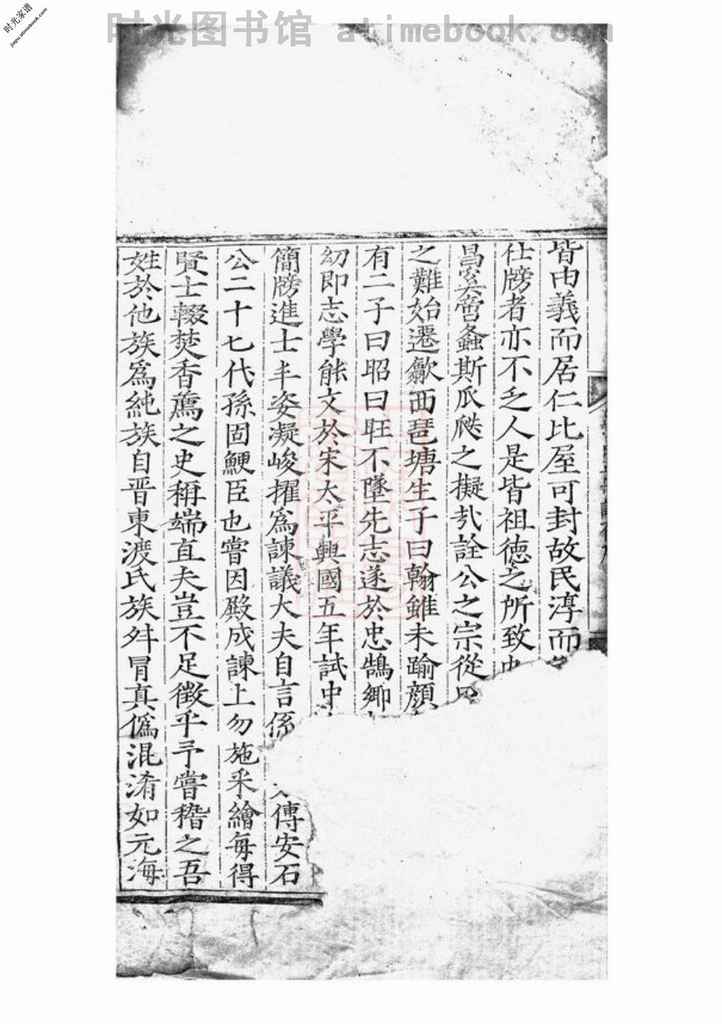 时光图书馆 atimebook.com
时光家谱
jiapu.atimebook.com
皆由義而居仁比屋可封故民淳而
仕牓者亦不乏人是皆祖德之所致
昌
螽斯瓜瓞之擬
詮公之宗從
之難始遷歙西琶塘生子曰翰雖未踰顏
有二子曰昭曰旺不墜先志遂於忠鵠鄉
幼即志學能文於宋太平興國五年試中
簡牓進士丰姿凝峻擢爲諫議大夫自言係
傳安石
公二十七代孫固鯁臣也嘗因殿成諫上勿施采繪每得
賢士輟焚香薦之史稱端直夫豈不足徵乎予嘗稽之吾
姓於他族爲純族自晋東渡氏族舛冐真僞混淆如元海